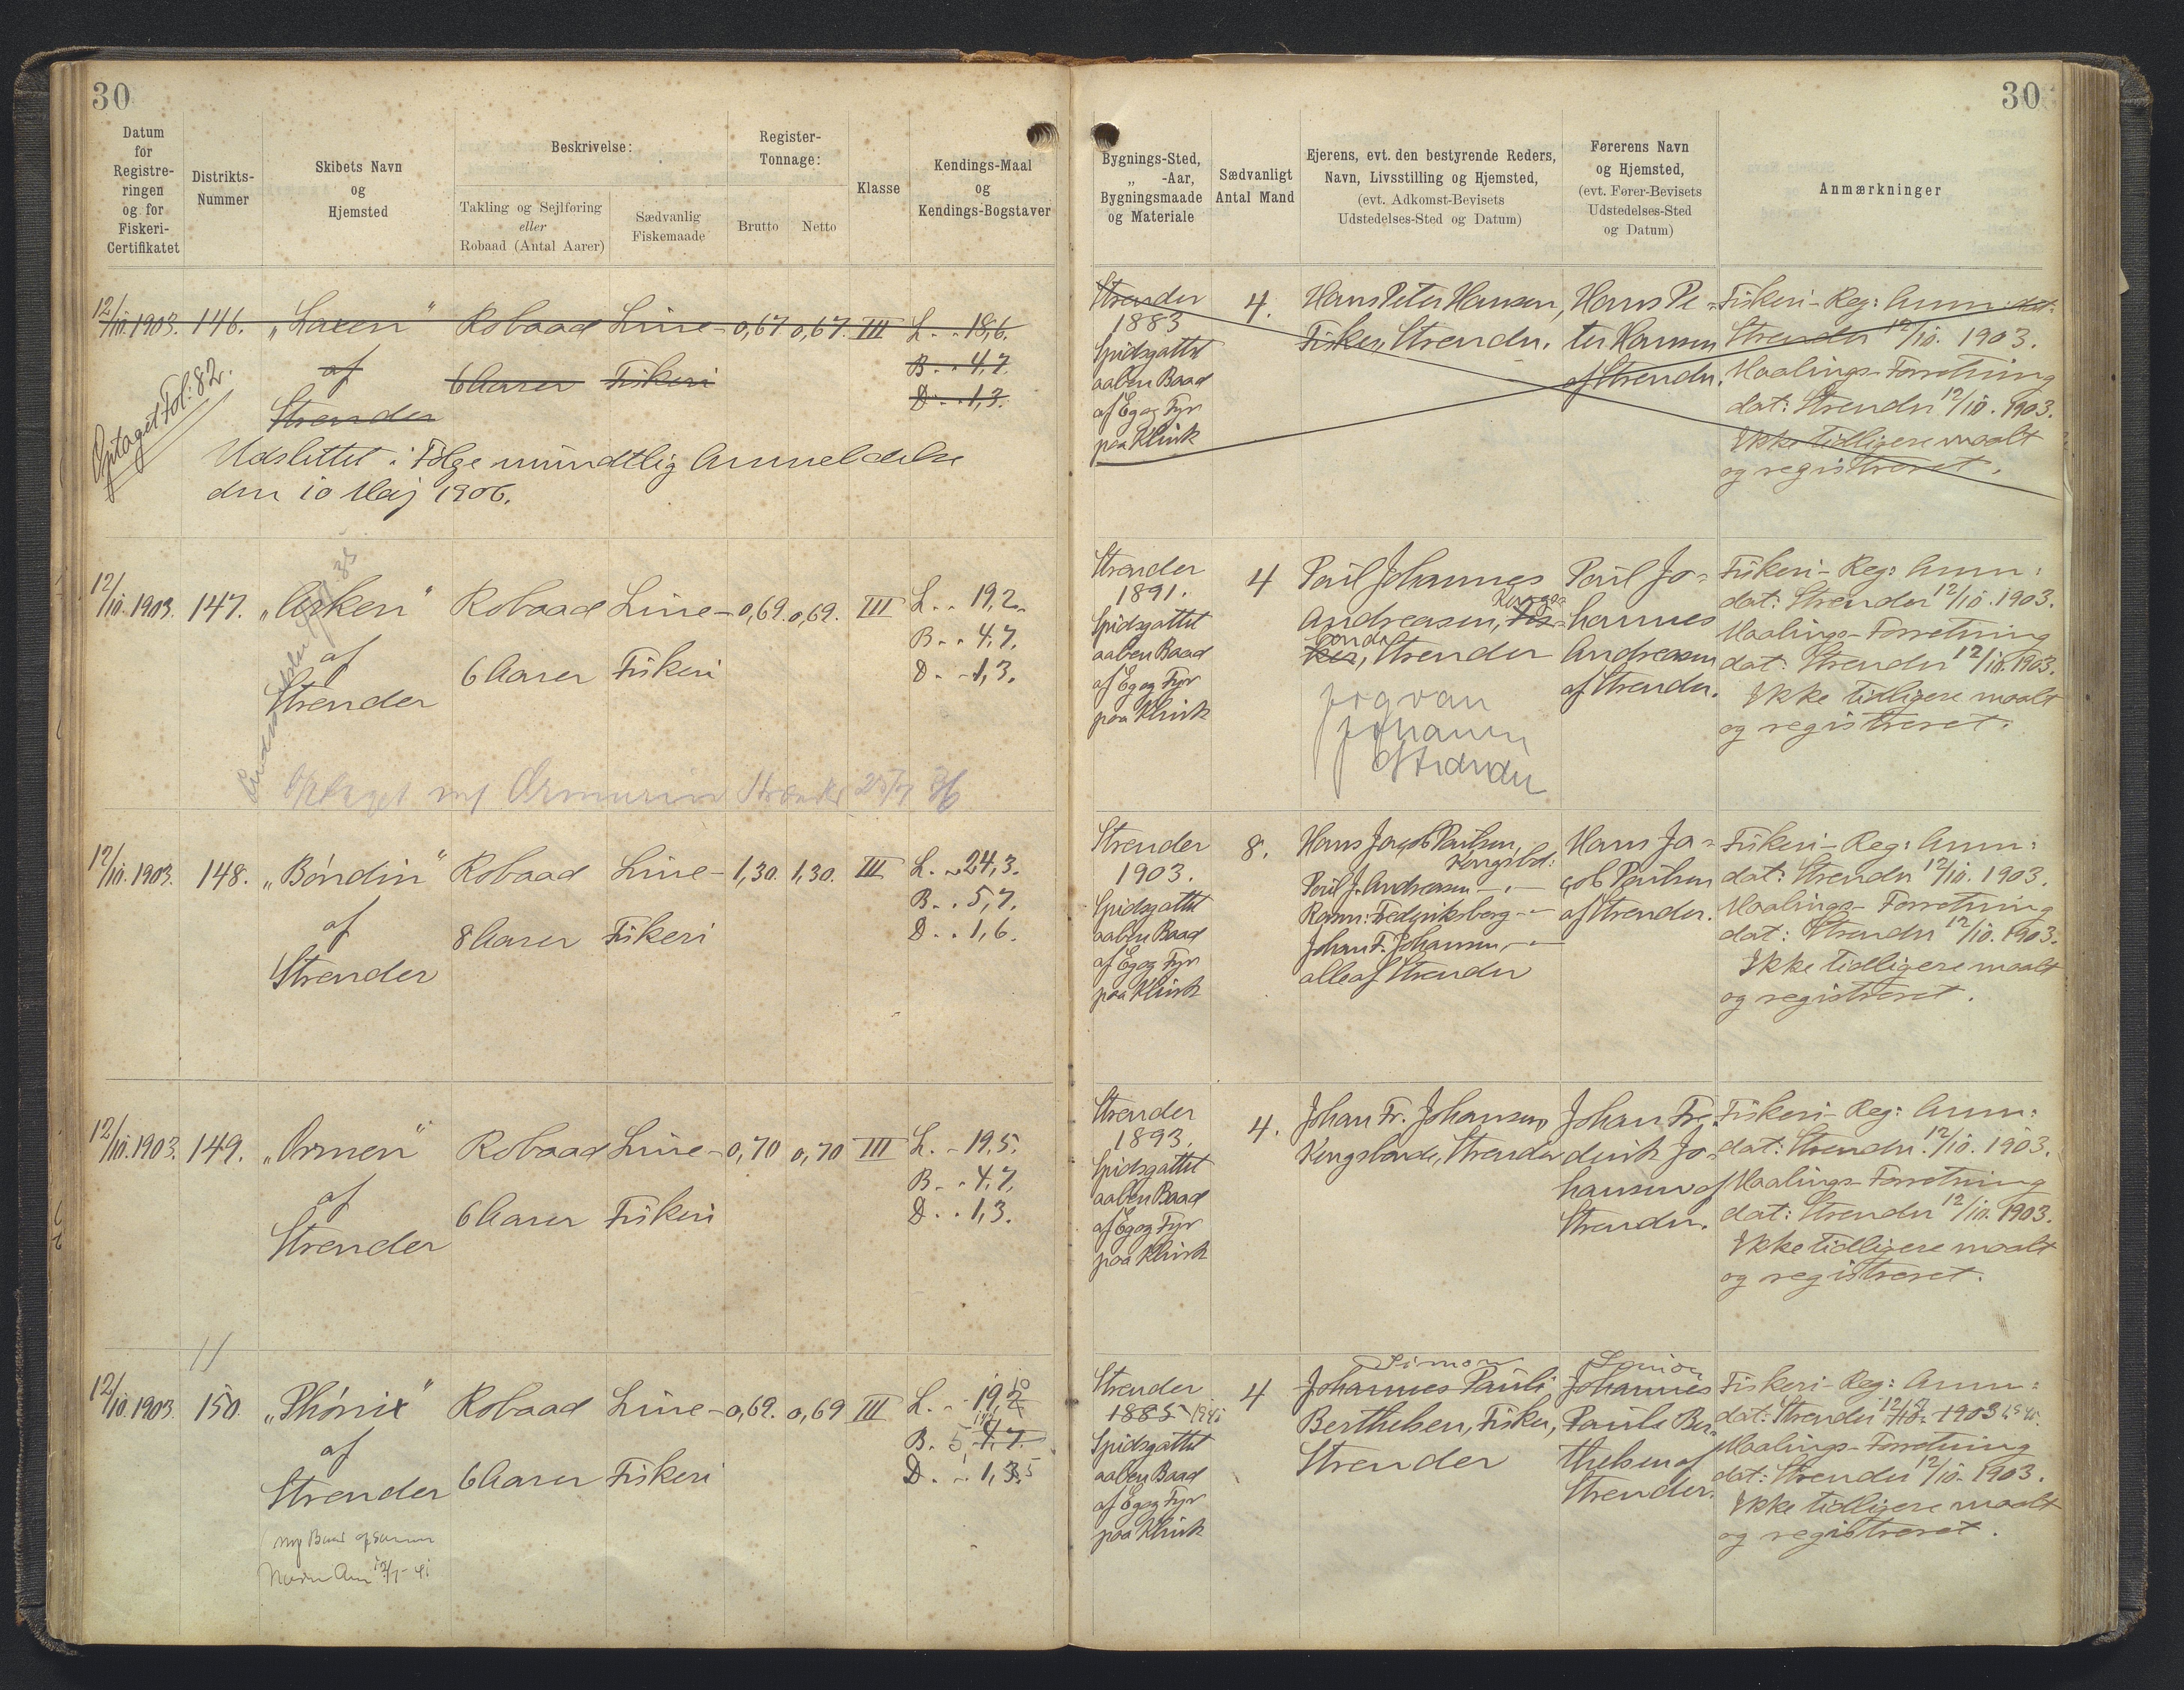 30
30
Datum
for
Registre-
ringen
og for
Fiskeri-
Certifikatet
Distrikts-
Nummer
Skibets Navn
og
Hjemsted
Beskrivelse:
Takling og Sejlføring
eller
Robaad (Antal Aarer)
Sædvanlig
Fiskemaade
Register-
Tonnage:
Brutto
Netto
Klasse
Kendings-Maal
og
Kendings-Bogstaver
Bygnings-Sted,
„ -Aar,
Bygningsmaade
og Materiale
Sædvanligt
Antal Mand
Ejerens, evt. den bestyrende Reders,
Navn, Livsstilling og Hjemsted,
(evt. Adkomst-Bevisets
Udstedelses-Sted og Datum)
Førerens Navn
og Hjemsted,
(evt. Fører-Bevisets
Udstedelses-Sted
og Datum)
Anmærkninger
12/10. 1903. 146. „Laxen“ Robaad Line- 0,67 0,67. III L. . . 18,6.
af 6 Aarer Fiskeri B. . . 4,7.
Strender D. . . 1,3.
Optaget Fol: 82.
Udslettet i Følge mundtlig Anmeldelse
den 10 Maj 1906.
Strender
1883
Spidsgattet
aaben Baad
af Eg og Fyr
paa Klink
4.
Hans Peter Hansen,
Fisker, Strender.
Hans Pe-
ter Hansen
af Strender.
Fiskeri-Reg: Anm: dat:
Strender 12/10. 1903.
Maalings-Forretning
dat: Strender 12/10. 1903.
Ikke tidligere maalt
og registreret.
12/10. 1903. 147. „Arken“ Robaad Line- 0,69. 0,69. III L. . . 19,2.
af 6 Aarer Fiskeri B. . . 4,7.
Strender D. . . 1,3.
Optaget Strender 25/7
Strender
1891.
Spidsgattet
aaben Baad
af Eg og Fyr
paa Klink
4
Poul Johannes
Andreasen, Fis-
ker, Strender
Kongs
bonde
Jogvan
Johannes
Strender
Poul Jo-
hannes
Andreasen
af Strender.
Fiskeri-Reg: Anm:
dat: Strender 12/10. 1903.
Maalings-Forretning
dat: Strender 12/10. 1903.
Ikke tidligere maalt
og registreret.
12/10. 1903. 148. „Bóndin“ Robaad Line- 1,30. 1,30. III L. . . 24,3.
af 8 Aarer Fiskeri B. . . 5,7.
Strender D. . . 1,6.
Strender
1903.
Spidsgattet
aaben Baad
af Eg og Fyr
paa Klink
8.
Hans Jacob Poulsen,
Kongsbd:
Poul J. Andreasen — „ —
Rasm: Frederiksberg — „ —
Johan F. Johansen — „ —
alle af Strender
Hans Ja-
cob Poulsen
af Strender.
Fiskeri-Reg: Anm:
dat: Strender 12/10. 1903.
Maalings-Forretning
dat: Strender 12/10. 1903.
Ikke tidligere maalt
og registreret.
12/10. 1903. 149. „Ormen“ Robaad Line- 0,70 0,70 III L. . - 19,5.
af 6 Aarer Fiskeri B. . . 4,7.
Strender D. . . 1,3.
Strender
1893.
Spidsgattet
aaben Baad
af Eg og Fyr
paa Klink
4.
Johan Fr. Johansen,
Kongsbonde, Strender
Johan Fre-
derik Jo-
hansen af
Strender.
Fiskeri-Reg: Anm:
dat: Strender 12/10. 1903.
Maalings-Forretning
dat: Strender 12/10. 1903.
Ikke tidligere maalt
og registreret.
12/10. 1903. 150. „Phónix“ Robaad Line- 0,69. 0,69 III L. . - 19,2
af 6 Aarer Fiskeri B. 5 4,7.
Strender D. . - 1,3. 5
ny Baad af samme
Navn
Strender
1885
Spidsgattet
aaben Baad
af Eg og Fyr
paa Klink
4
Simon
Johannes Pauli
Berthelsen, Fisker,
Strender
Simon
Johannes
Pauli Ber-
thelsen af
Strender.
Fiskeri-Reg: Anm:
dat: Strender 12/10. 1903
Maalings-Forretning
dat: Strender 12/10. 1903.
Ikke tidligere maalt
og registreret.